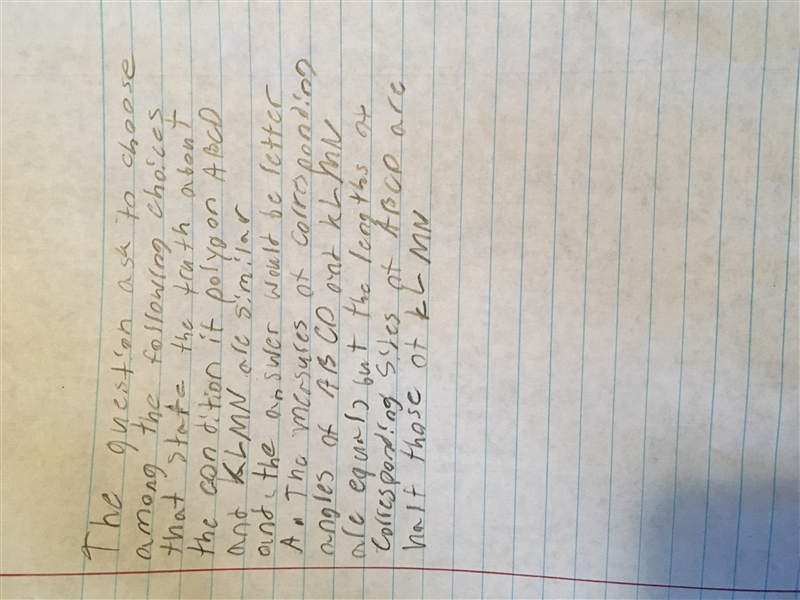 The question ask to choose
among the following choices
that state the truth about
the condition if polygon ABCD
and KLMN are similar
and, the answer would be letter
A. The measures of corresponding
angles of ABCD and KLMN
are equal, but the lengths of
corresponding sides of ABCD are
half those of KLMN